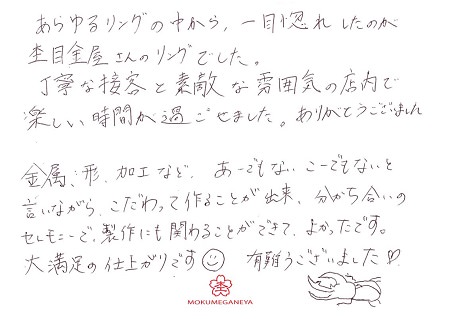 あらゆるリングの中から、一目惚れしたのが
杢目金屋さんのリングでした。
丁寧な接客と素敵な雰囲気の店内で
楽しい時間が過ごせました。ありがとうございました
金属、形、加工など、あーでもない、こーでもないと
言いながら、こだわって作ることが出来、分かち合いの
セレモニーで、製作にも関わることができて、よかったです。
大満足の仕上がりです☺ 有難うございました♡
MOKUMEGANEYA